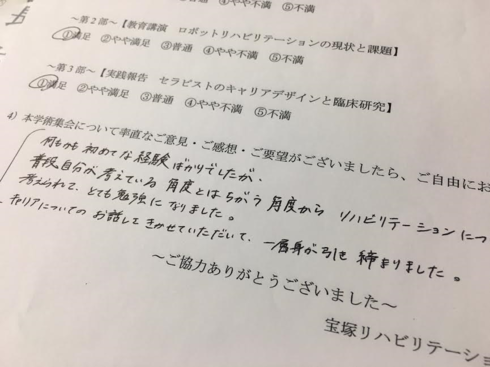 ～第2部～【教育講演　ロボットリハビリテーションの現状と課題】
①満足　②やや満足　③普通　④やや不満　⑤不満
～第3部～【実践報告　セラピストのキャリアデザインと臨床研究】
①満足　②やや満足　③普通　④やや不満　⑤不満
4）本学術集会について率直なご意見・ご感想・ご要望がございましたら、ご自由にお
何もかも初めてな経験ばかりでしたが、
普段自分が考えている角度とはちがう角度から リハビリテーションにつ
考えられて、とても勉強になりました。
キャリアについてのお話しをきかせていただいて、一層身が引き締まりました。
～ご協力ありがとうございました～
宝塚リハビリテーショ